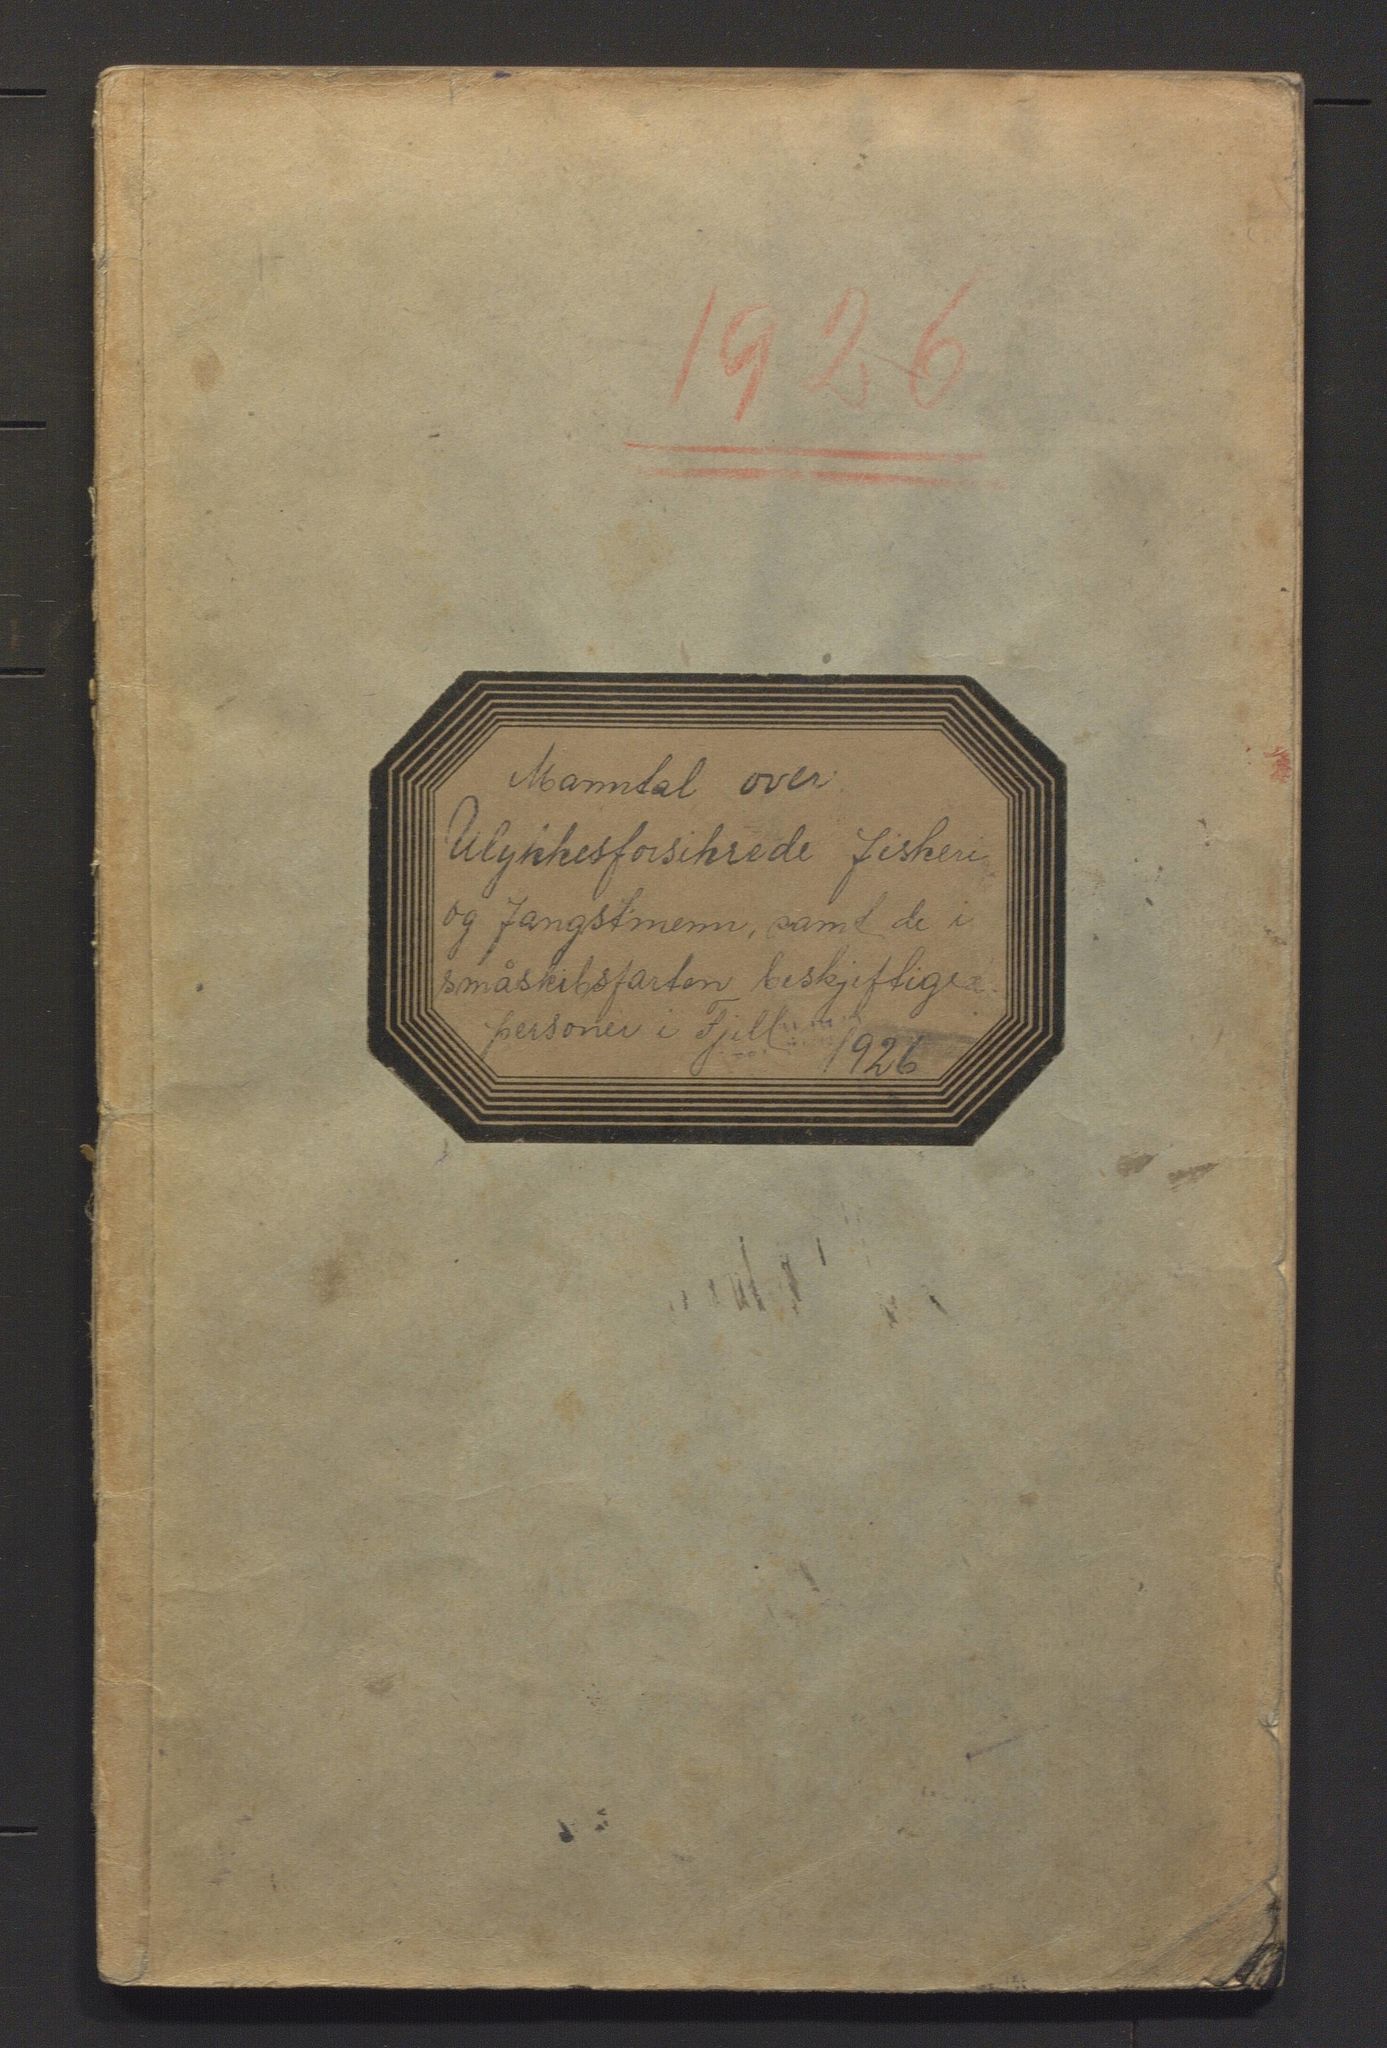 1926
Manntal over
Ulykkesforsikrede fiskeri
og fangstmenn, samt de i
småskibsfarten beskjeftige
personer i Fjell
1926